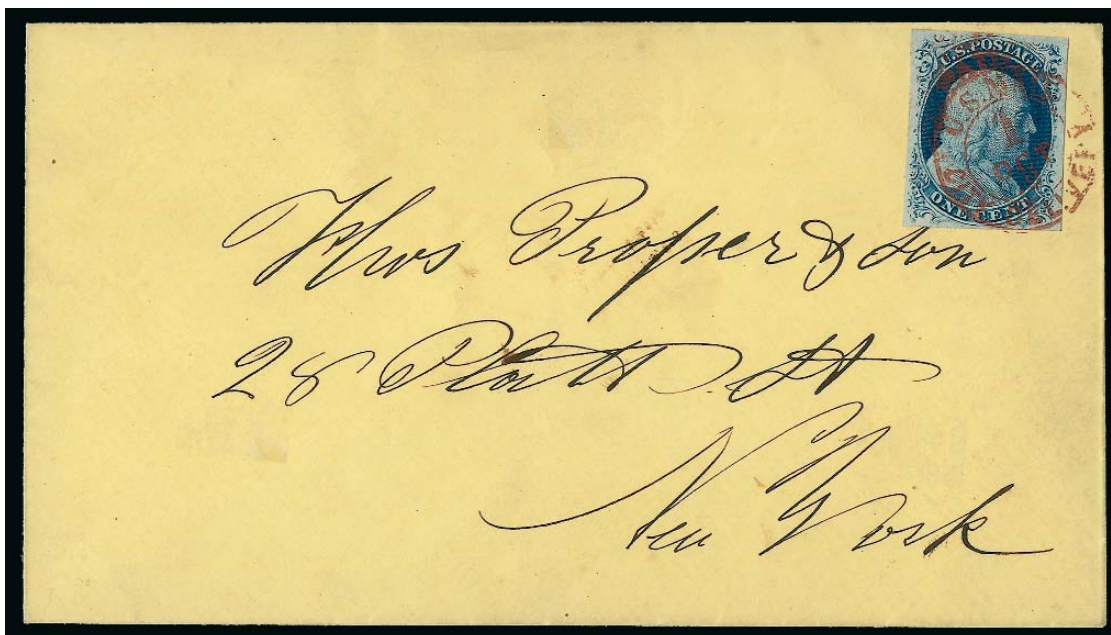 U.S. POSTAGE
ONE CENT
U.S.M
Thos Proper & Son
28 Platt St
New York